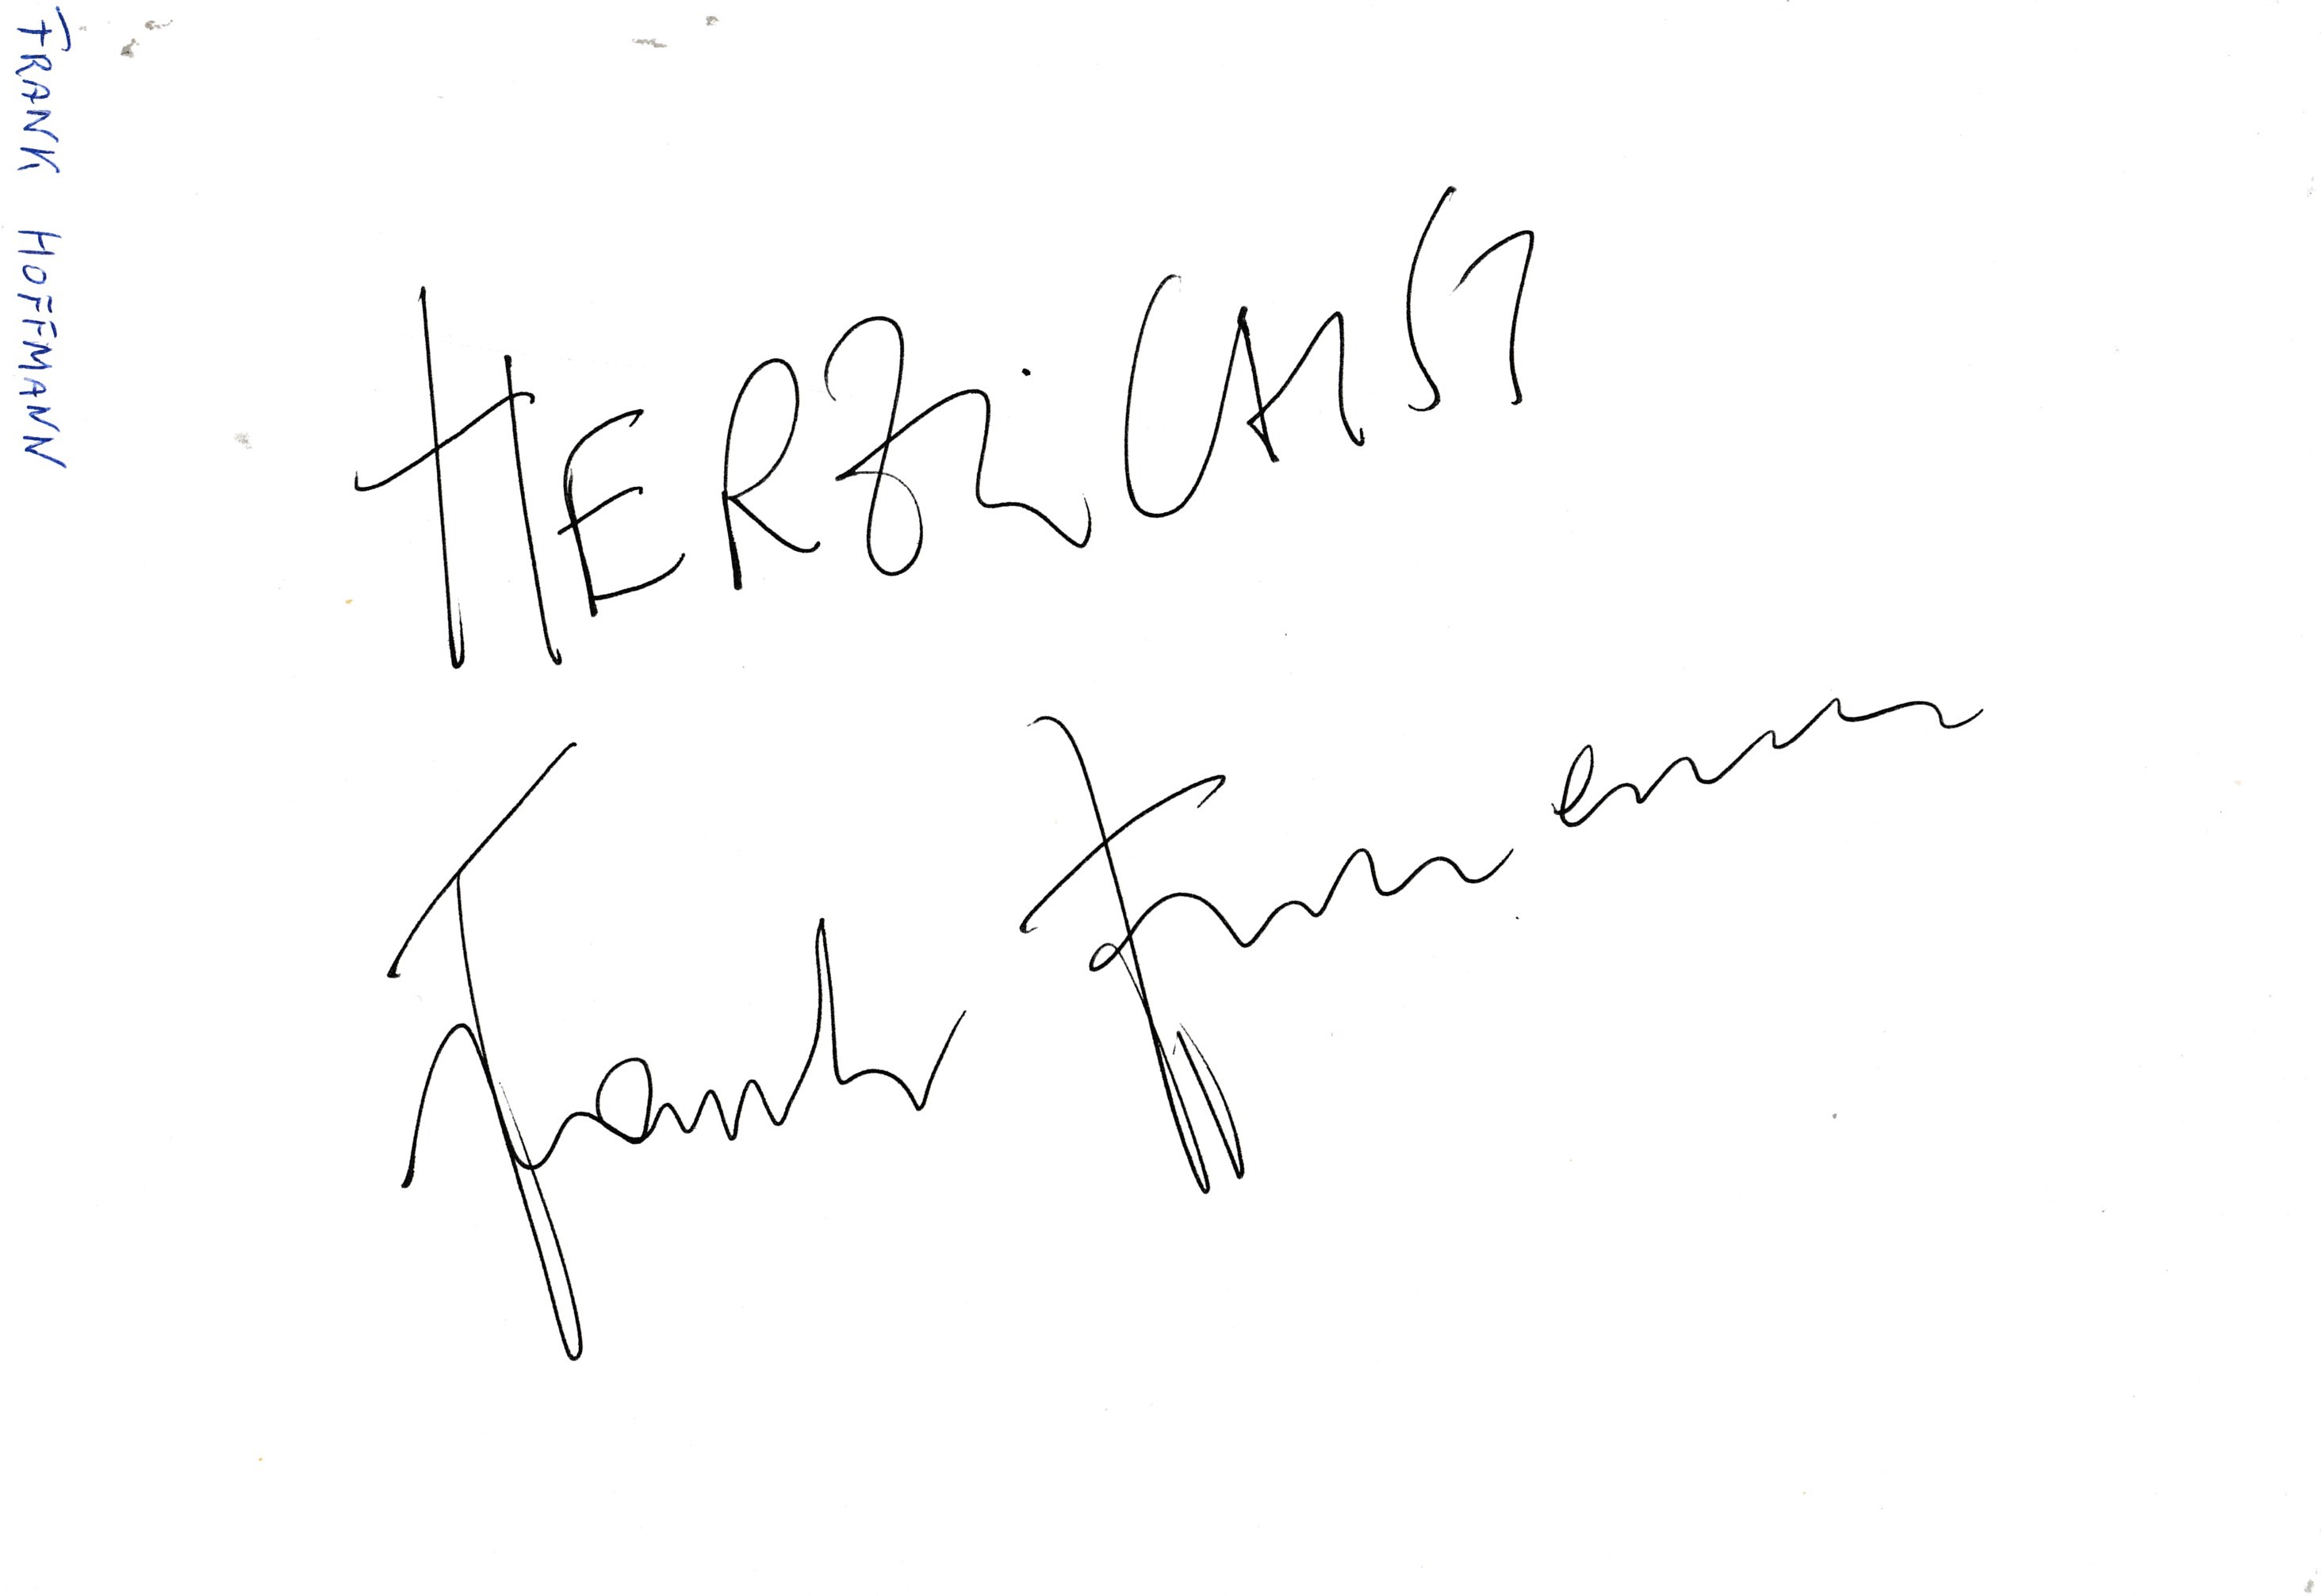 FRANK HOFFMANN
HERZLICHST
Frank Hoffmann